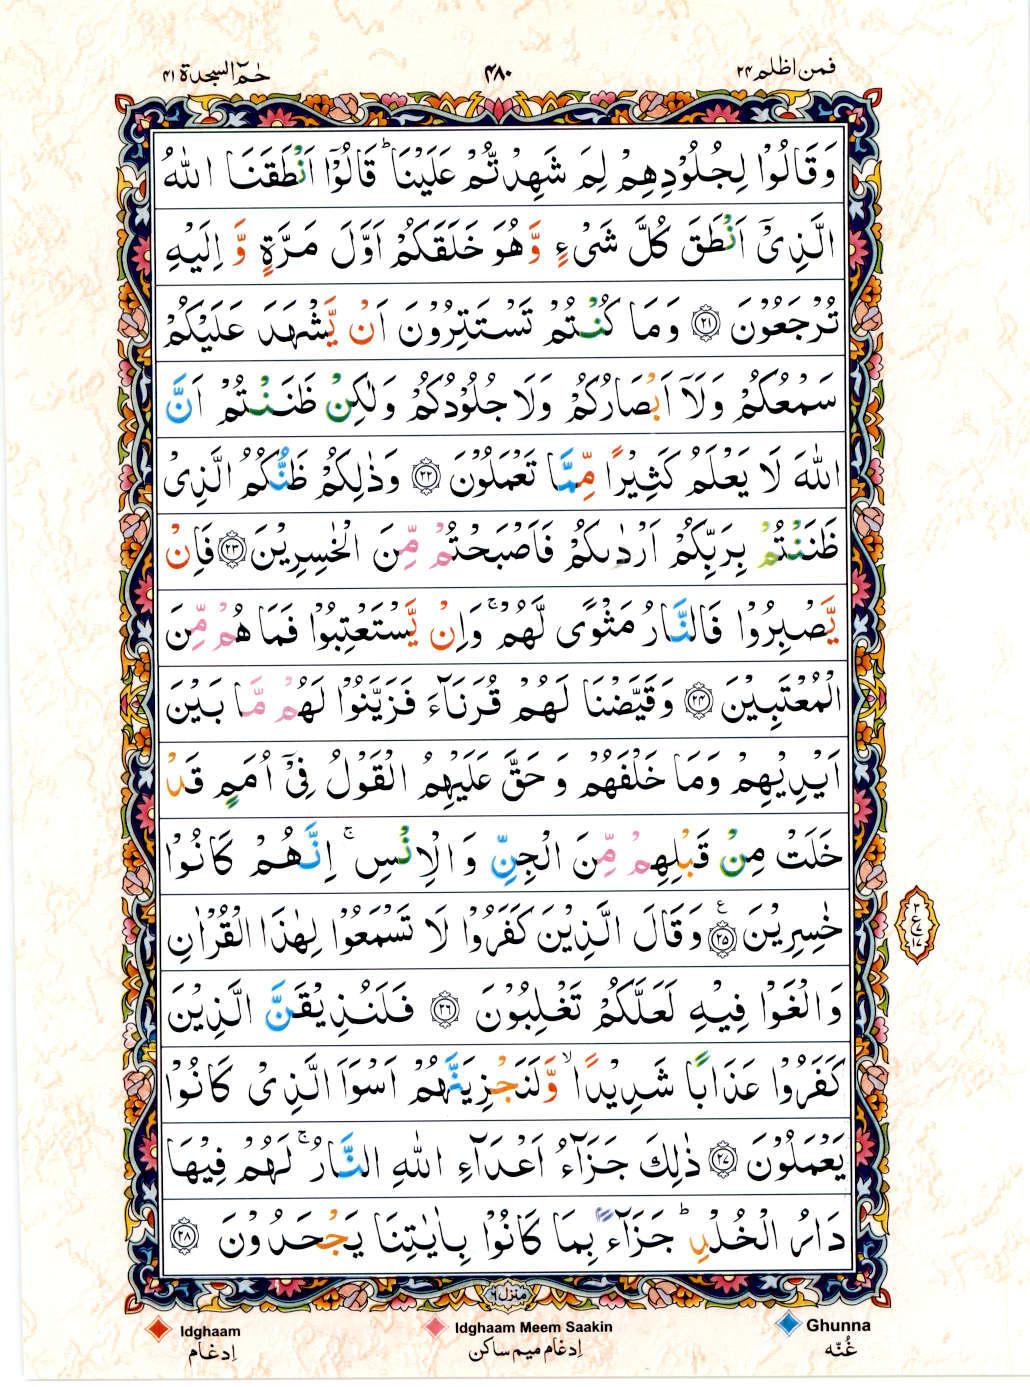 فمن اظلم ۲۴
۴۸۰
حٰمٓ السجدة ۴۱
وَقَالُوْا لِجُلُوْدِهِمْ لِمَ شَهِدْتُّمْ عَلَيْنَا ؕ قَالُوْۤا اَنْطَقَنَا اللّٰهُ
الَّذِیْۤ اَنْطَقَ كُلَّ شَیْءٍ وَّهُوَ خَلَقَكُمْ اَوَّلَ مَرَّةٍ وَّ اِلَيْهِ
تُرْجَعُوْنَ ﴿۲۱﴾ وَمَا كُنْتُمْ تَسْتَتِرُوْنَ اَنْ يَّشْهَدَ عَلَيْكُمْ
سَمْعُكُمْ وَلَاۤ اَبْصَارُكُمْ وَلَا جُلُوْدُكُمْ وَلٰكِنْ ظَنَنْتُمْ اَنَّ
اللّٰهَ لَا يَعْلَمُ كَثِيْرًا مِّمَّا تَعْمَلُوْنَ ﴿۲۲﴾ وَذٰلِكُمْ ظَنُّكُمُ الَّذِیْ
ظَنَنْتُمْ بِرَبِّكُمْ اَرْدٰىكُمْ فَاَصْبَحْتُمْ مِّنَ الْخٰسِرِيْنَ ﴿۲۳﴾ فَاِنْ
يَّصْبِرُوْا فَالنَّارُ مَثْوًی لَّهُمْ ۚ وَاِنْ يَّسْتَعْتِبُوْا فَمَا هُمْ مِّنَ
الْمُعْتَبِيْنَ ﴿۲۴﴾ وَقَيَّضْنَا لَهُمْ قُرَنَآءَ فَزَيَّنُوْا لَهُمْ مَّا بَيْنَ
اَيْدِيْهِمْ وَمَا خَلْفَهُمْ وَ حَقَّ عَلَيْهِمُ الْقَوْلُ فِیْۤ اُمَمٍ قَدْ
خَلَتْ مِنْ قَبْلِهِمْ مِّنَ الْجِنِّ وَ الْاِنْسِ ۚ اِنَّهُمْ كَانُوْا
خٰسِرِيْنَ ﴿۲۵﴾ ع وَقَالَ الَّذِيْنَ كَفَرُوْا لَا تَسْمَعُوْا لِهٰذَا الْقُرْاٰنِ
وَ الْغَوْا فِيْهِ لَعَلَّكُمْ تَغْلِبُوْنَ ﴿۲۶﴾ فَلَنُذِيْقَنَّ الَّذِيْنَ
كَفَرُوْا عَذَابًا شَدِيْدًا ۙ وَّلَنَجْزِيَنَّهُمْ اَسْوَاَ الَّذِیْ كَانُوْا
يَعْمَلُوْنَ ﴿۲۷﴾ ذٰلِكَ جَزَآءُ اَعْدَآءِ اللّٰهِ النَّارُ ۚ لَهُمْ فِيْهَا
دَارُ الْخُلْدِ ؕ جَزَآءًۢ بِمَا كَانُوْا بِاٰيٰتِنَا يَجْحَدُوْنَ ﴿۲۸﴾
۳
ع ۷
۱۷
منزل ۶
Ghunna
غُنّه
Idghaam Meem Saakin
اِدغام میم ساکن
Idghaam
اِدغام